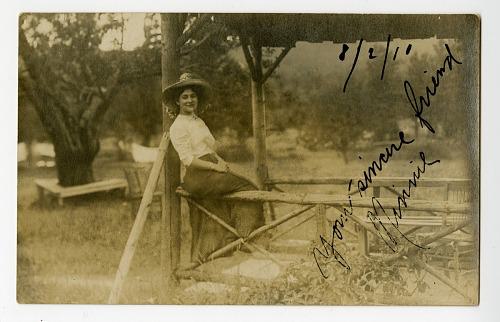 8/2/10
Your sincere friend
Minnie